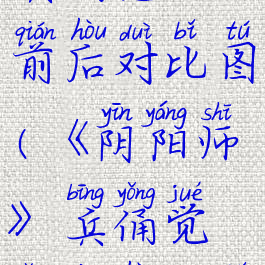 qián hòu duì bǐ tú
前后对比图
yīn yáng shī
(《阴阳师
bīng yǒng jué
》兵俑觉